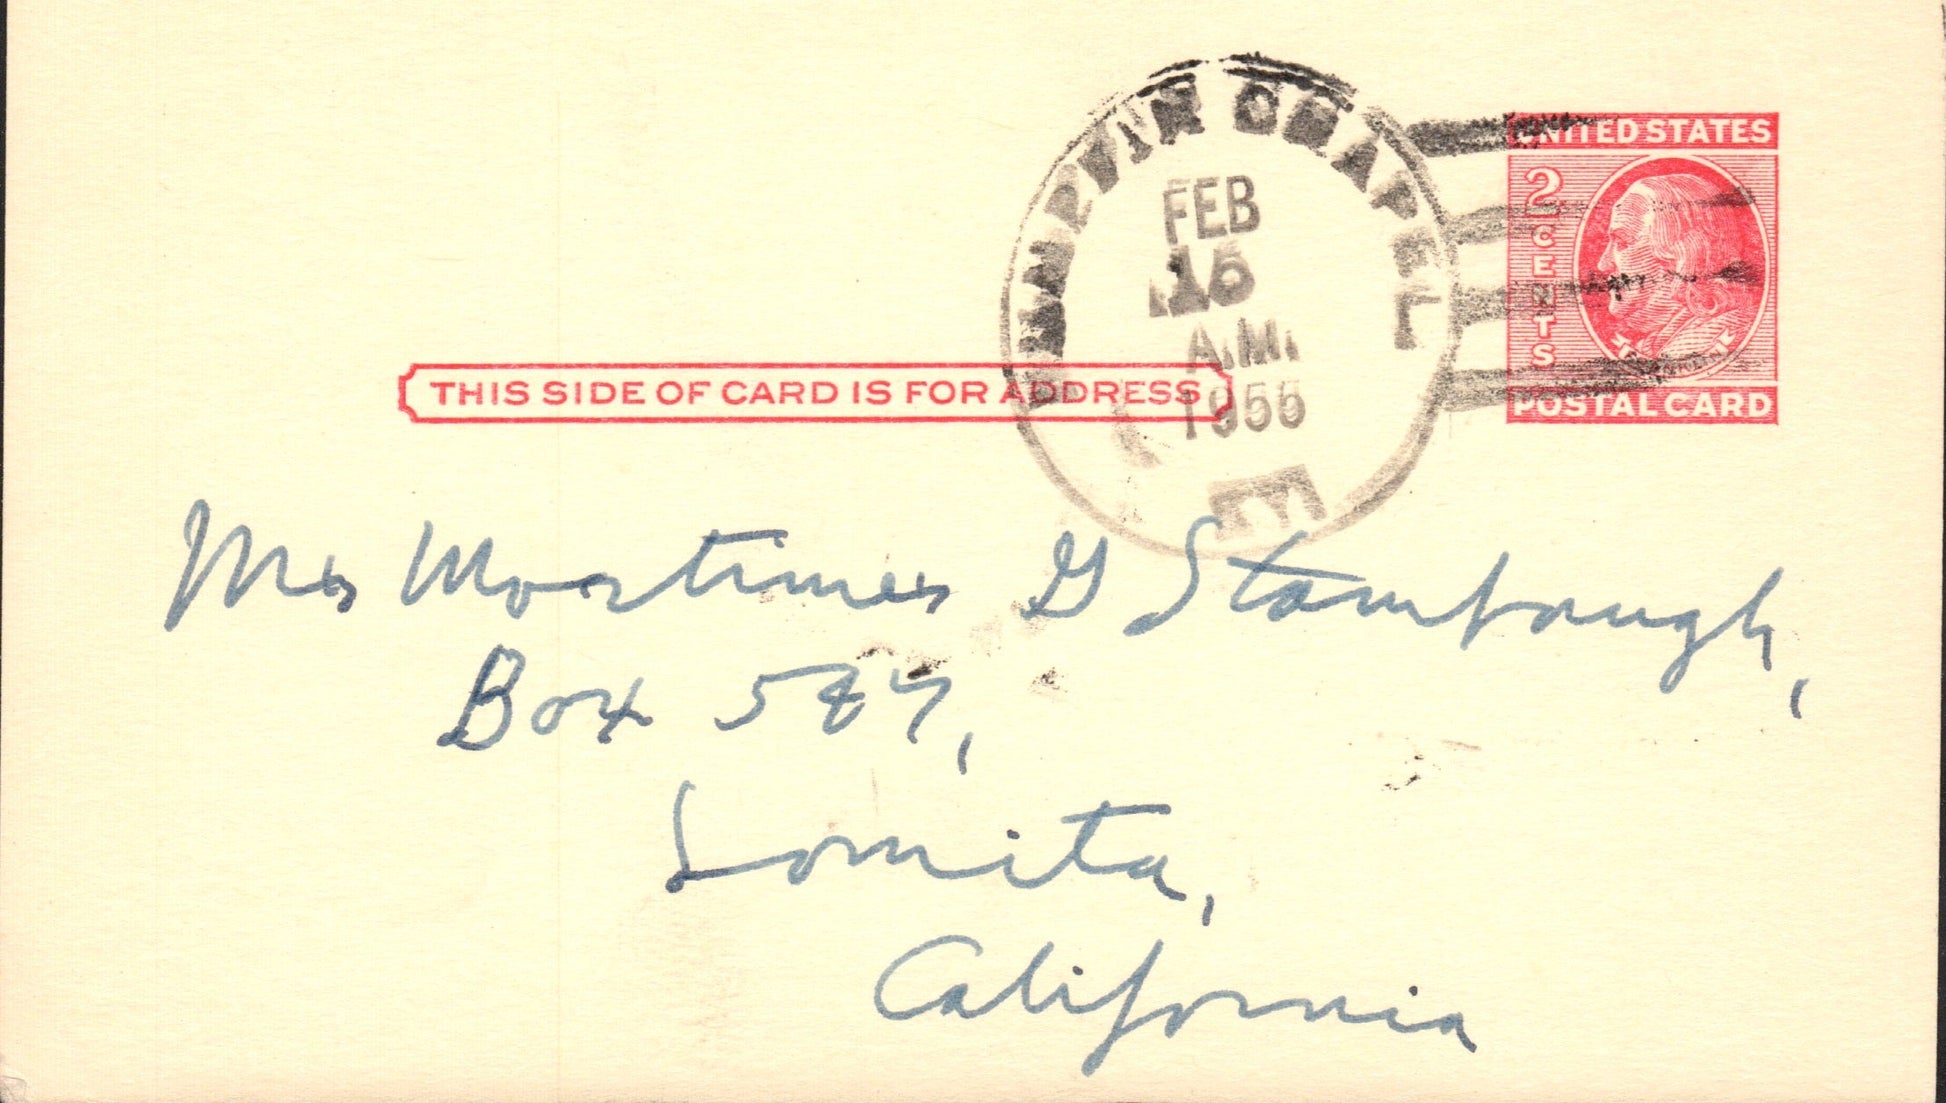 MARVIN CHAPEL
FEB
15
A.M.
1955
UNITED STATES
2
CENTS
POSTAL CARD
THIS SIDE OF CARD IS FOR ADDRESS
Mr Mortimer G Stambaugh,
Box 587,
Lomita,
California